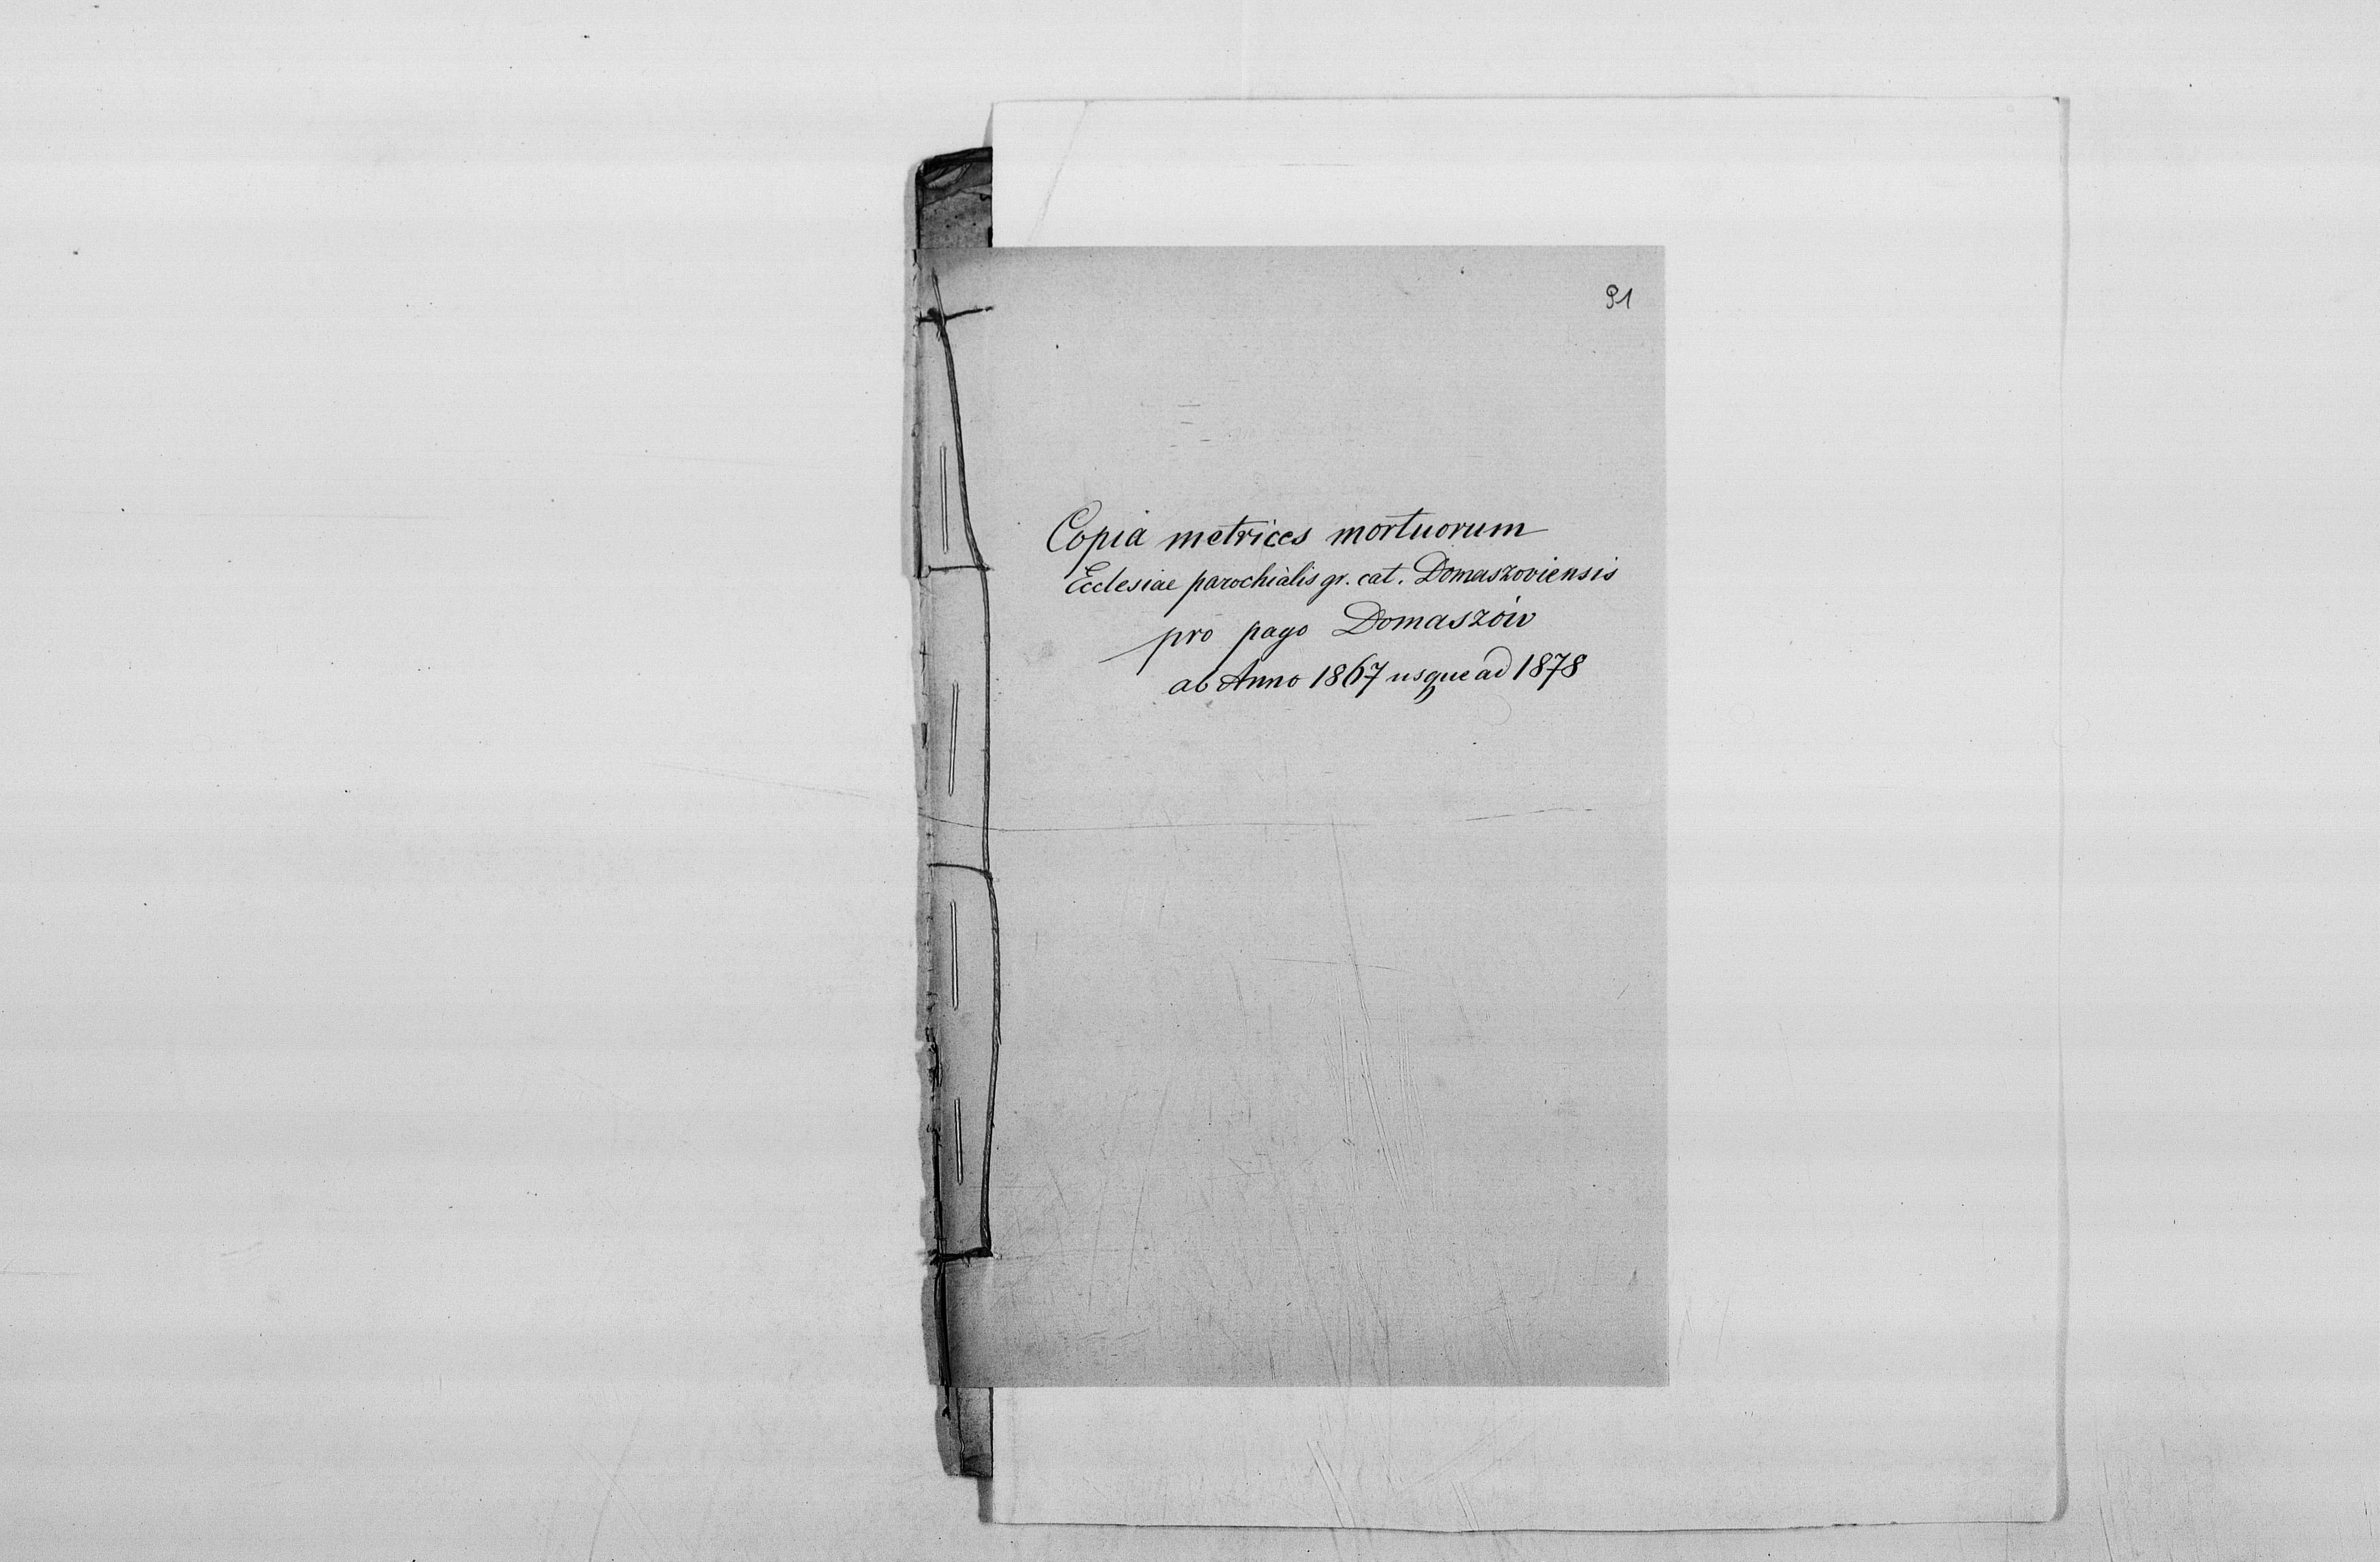 91
Copia metrices mortuorum
Ecclesiae parochialis gr. cat. Domaszoviensis
pro pago Domaszów
ab Anno 1867 usque ad 1878